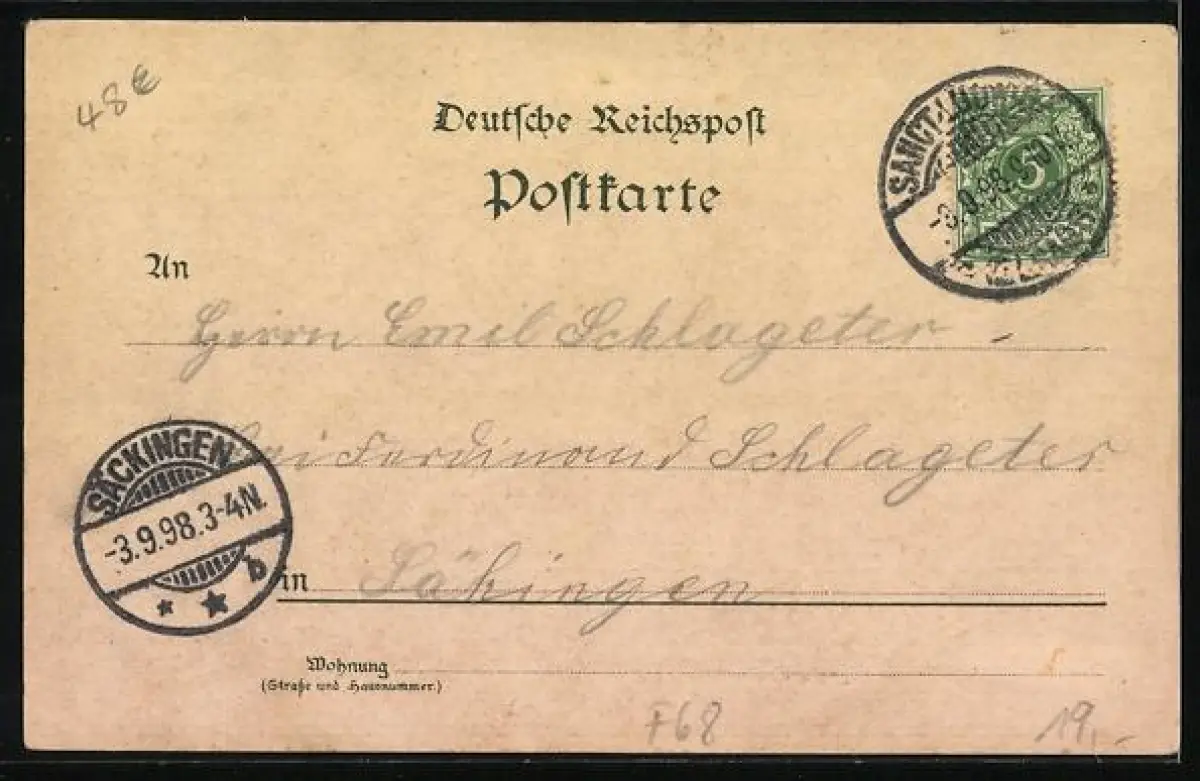 48€
Deutsche Reichspost
Postkarte
SANCT
5
An
Herrn Emil Schlageter
bei Ferdinand Schlageter
SÄCKINGEN
-3.9.98.3-4N.
b
in Säkingen
Wohnung
(Straße und Hausnummer.)
F68
19,-